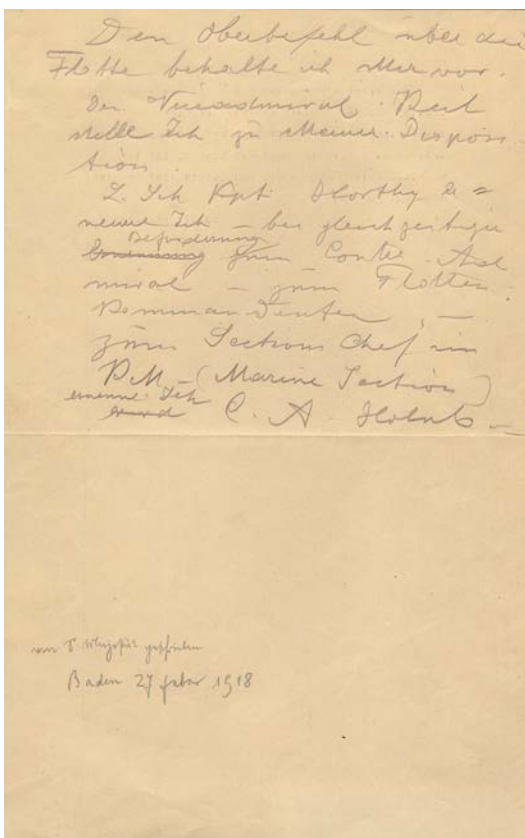 Den Oberbefehl über die
Flotte behalte ich Mir vor.
Den Viceadmiral Keil
stelle Ich zu Meiner Disposi-
tion.
L. Sch Kpt. Horthy er=
nenne Ich – bei gleichzeitiger
Beförderung
Ernennung zum Contre Ad
miral – zum Flotten
Kommandanten, –
zum Sections Chef im
K.M. – (Marine Section)
ernenne Ich
wird C. A. Holub –
von S. Majestät geschrieben
Baden 27 feber 1918